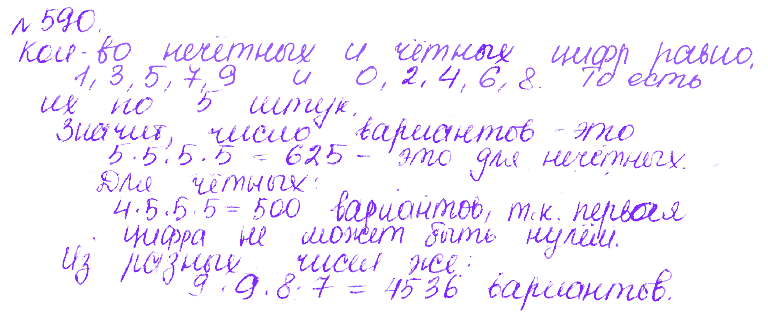 №590.
Кол-во нечётных и чётных цифр равно.
1, 3, 5, 7, 9 и 0, 2, 4, 6, 8. То есть
их по 5 штук.
Значит, число вариантов - это
5·5·5·5 = 625 - это для нечётных.
Для чётных:
4·5·5·5 = 500 вариантов, т.к. первая
цифра не может быть нулём.
Из разных чисел же:
9·9·8·7 = 4536 вариантов.